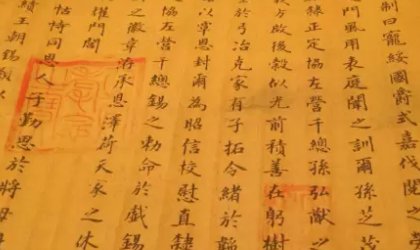 制曰寵綏國爵式嘉伐閱之
門風用表庭闈之訓爾孫芝茂
隸正定協左營千總孫弘猷之
教方啟後穀似光前積善在躬樹
於弓冶克家有子拓令緒於韜
以覃恩封爾為昭信校慰直隸
協左營千總錫之勅命於戲錫
之徽章洊承恩澤荷天家之休
門閫
怙恃同恩人子勤思於將母
續王朝錫類以